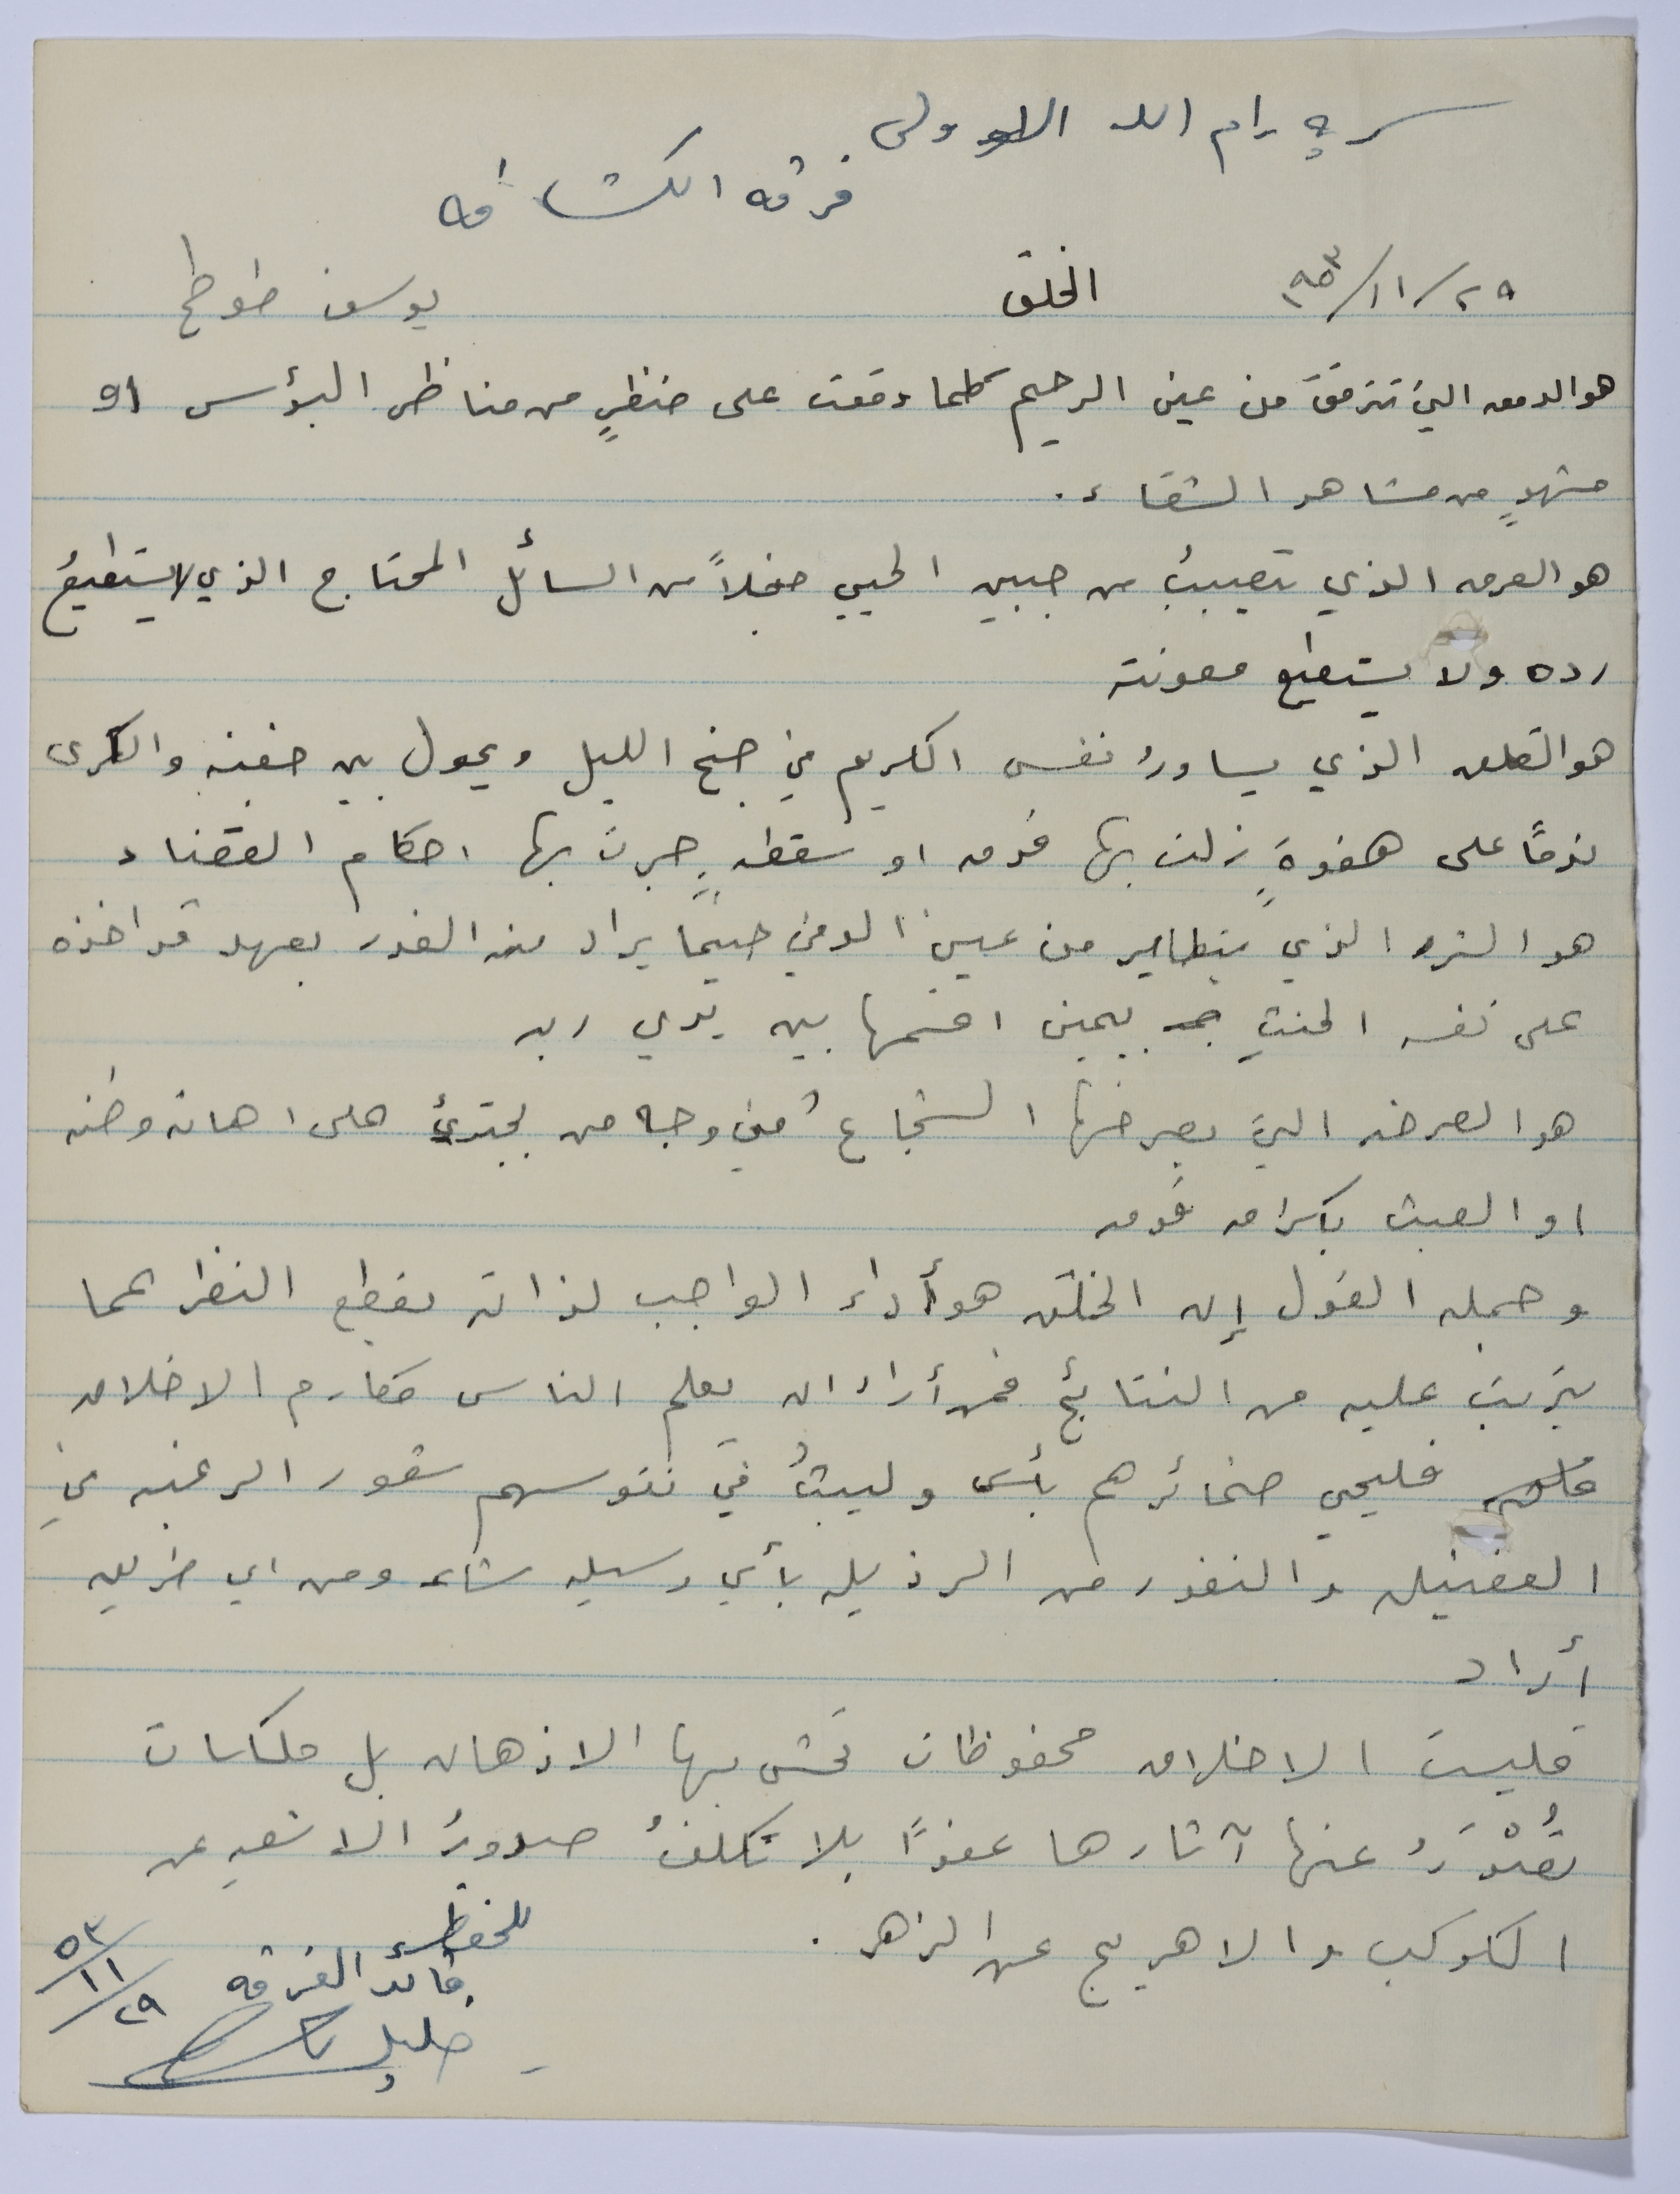 سرية رام الله الاولى
فرقة الكشافة
٢٩/١١/٩٥٣ الخلق يوسف طوطح
هو الدمعه التي تترقق من عين الرحيم كلما وقعت على منظرٍ من مناظر البؤس او
مشهدٍ من مشاهد الشقاء.
هو العرق الذي يتصببُ من جبين الحيي خجلاً من السائل المحتاج الذي لا يستطيعُ
رده ولا يستطيع معونته
هو القلق الذي يساورُ نفس الكريم في جنح الليل ويحول بين جفنيه والكرى
ندمًا على هفوةٍ زلت بها قدمه او سقطةٍ جرت بها احكام القضاء
هو الشرر الذي يتطاير من عيني الوفي حينما يراد منه الغدر بعهد قد اخذه
على نفسه الحنثِ بيمين اقسمها بين يدي ربه
هو الصرخه التي يصرخها الشجاعُ في وجه من يجترئ على اهانة وطنه
او العبث بكرامة قومه
وجملة القول إن الخلق هو أداء الواجب لذاته بقطع النظر عما
يترتب عليه من النتائج فمن أراد ان يعلم الناس مكارم الاخلاق
فليحيي ضمائرهم وليبثُ في نفوسهم شعور الرغبه في
الفضيله والنفور من الرذيله بأي وسيله شاء ومن اي طريق
أراد
فليست الاخلاق محفوظات تحشى بها الاذهان بل ملكات
تَصْدُرُ عنها آثارها عفوًا بلا تكلفُ صدورُ الاشعه عن
الكوكب والاهريج عن الزهر.
للحفظ
قائد الفرقه
خليل
٢٩/١١/٥٣